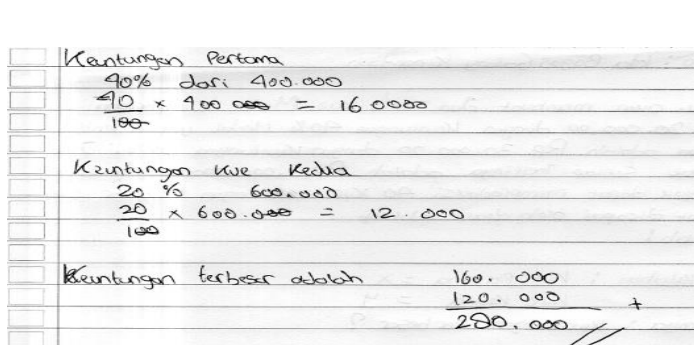 Keuntungan Pertama
40% dari 400.000
40/100 × 400 000 = 160000
Keuntungan kue kedua
20 % 600.000
20/100 × 600.000 = 12.000
Keuntungan terbesar adalah 160.000
120.000 +
280.000